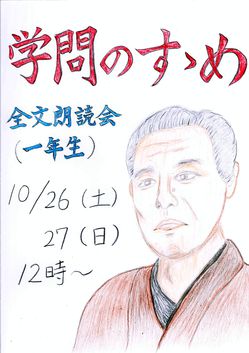 学問のすゝめ
全文朗読会
(一年生)
10/26(土)
27(日)
12時～